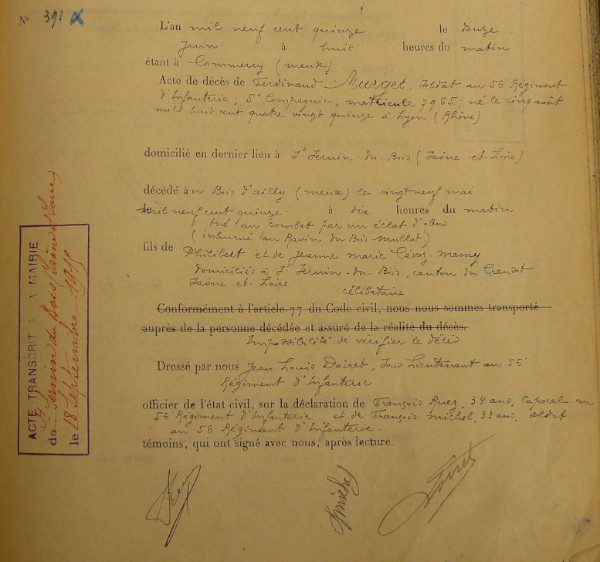 N° 391
L'an mil neuf cent quinze le douze
Juin à huit heures du matin
étant à Commercy (meuse)
Acte de décès de Ferdinand Murget, soldat au 56 Régiment
d'Infanterie, 5e Compagnie, matricule 7965; né le cinq août
mil huit cent quatre vingt quinze à Lyon (Rhône)
domicilié en dernier lieu à St Fernin-du-Bois (Saône-et-Loire)
décédé au Bois d'ailly (meuse) le vingt neuf mai
mil neuf cent quinze à dix heures du matin
tué au combat par un éclat d'obus
(inhumé au Ravin du Bois mullot)
fils de Philibert et de Jeanne Marie
domiciliés à St Fernin-du-Bois, canton du Creusot
Saône et-Loire
célibataire
Conformément à l'article 77 du Code civil, nous nous sommes transporté
auprès de la personne décédée et assuré de la réalité du décès.
Impossibilité de vérifier le décès
Dressé par nous Jean Louis Doiret, Sous Lieutenant au 56
Régiment d'Infanterie
officier de l'état civil, sur la déclaration de François 34 ans, Caporal au
56 Régiment d'Infanterie et de François michel, 32 ans, soldat
au 56 Régiment d'Infanterie.
témoins, qui ont signé avec nous, après lecture.
Fmichel
Doiret
ACTE TRANSCRIT À LA MAIRIE
de St Sernin du Bois (Saône et Loire)
le 18 Septembre 1915